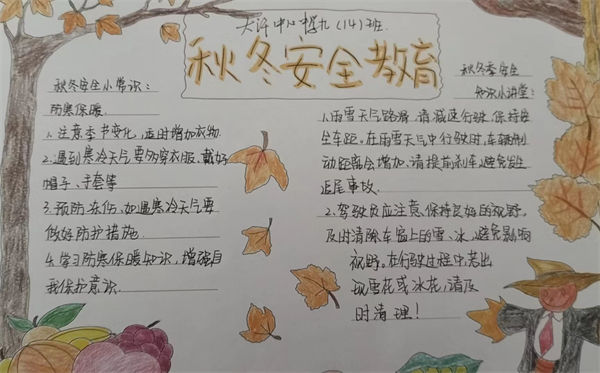 大许中心校九(14)班
秋冬安全教育
秋冬安全小常识:
防寒保暖.
1.注意季节变化,适时增加衣物.
2.遇到寒冷天气要多穿衣服,戴好
帽子、手套等
3.预防冻伤、如遇寒冷天气要
做好防护措施.
4.学习防寒保暖知识,增强自
我保护意识.
秋冬季安全
知识小讲堂:
1.雨雪天气路滑,请减速行驶,保持安
全车距。在雨雪天气中行驶时,车辆制
动距离会增加.请提前刹车,避免发生
追尾事故.
2.驾驶员应注意.保持良好的视野.
及时清除车窗上的雪、冰,避免影响
视野。在行驶过程中,若出
现雪花或冰花,请及
时清理!